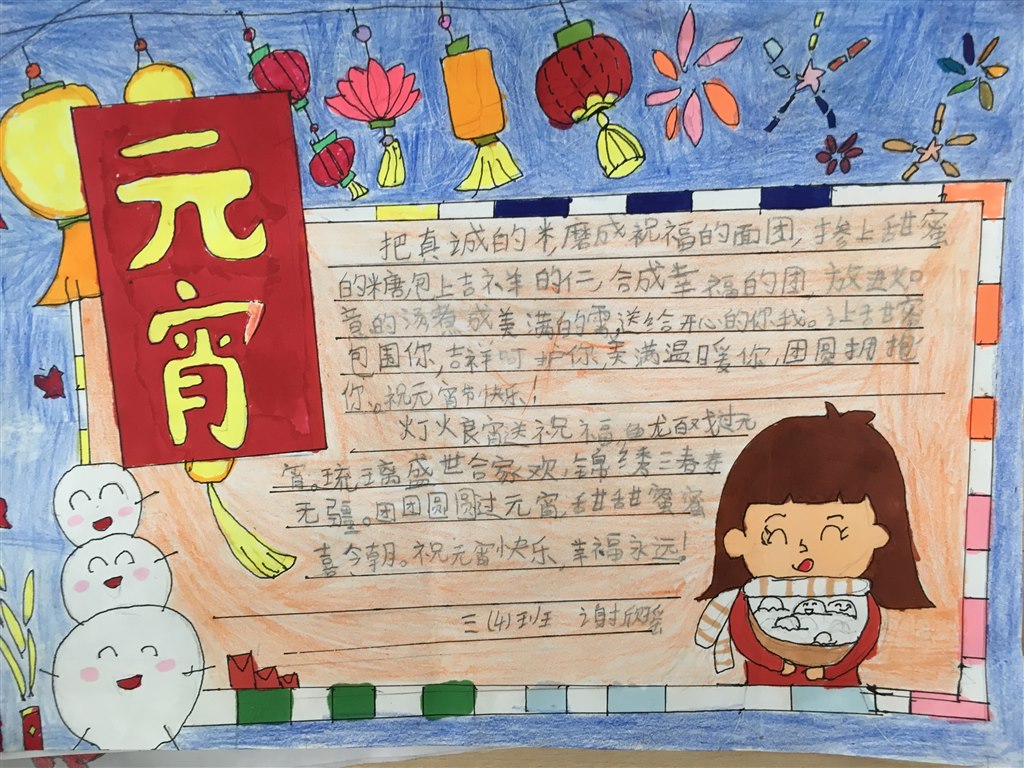 元宵
把真诚的米磨成祝福的面团,掺上甜蜜
的糖包上吉祥的仁,合成幸福的团,放进如
意的汤煮成美满的雪送给开心的你我。让甜蜜
包围你,吉祥呵护你,美满温暖你,团圆拥抱
你。祝元宵节快乐!
灯火良宵送祝福,鱼龙百戏过元
宵。琉璃盛世合家欢,锦绣三春春
无疆。团团圆圆过元宵,甜甜蜜蜜
喜今朝。祝元宵快乐,幸福永远!
三(4)班 谢欣瑶